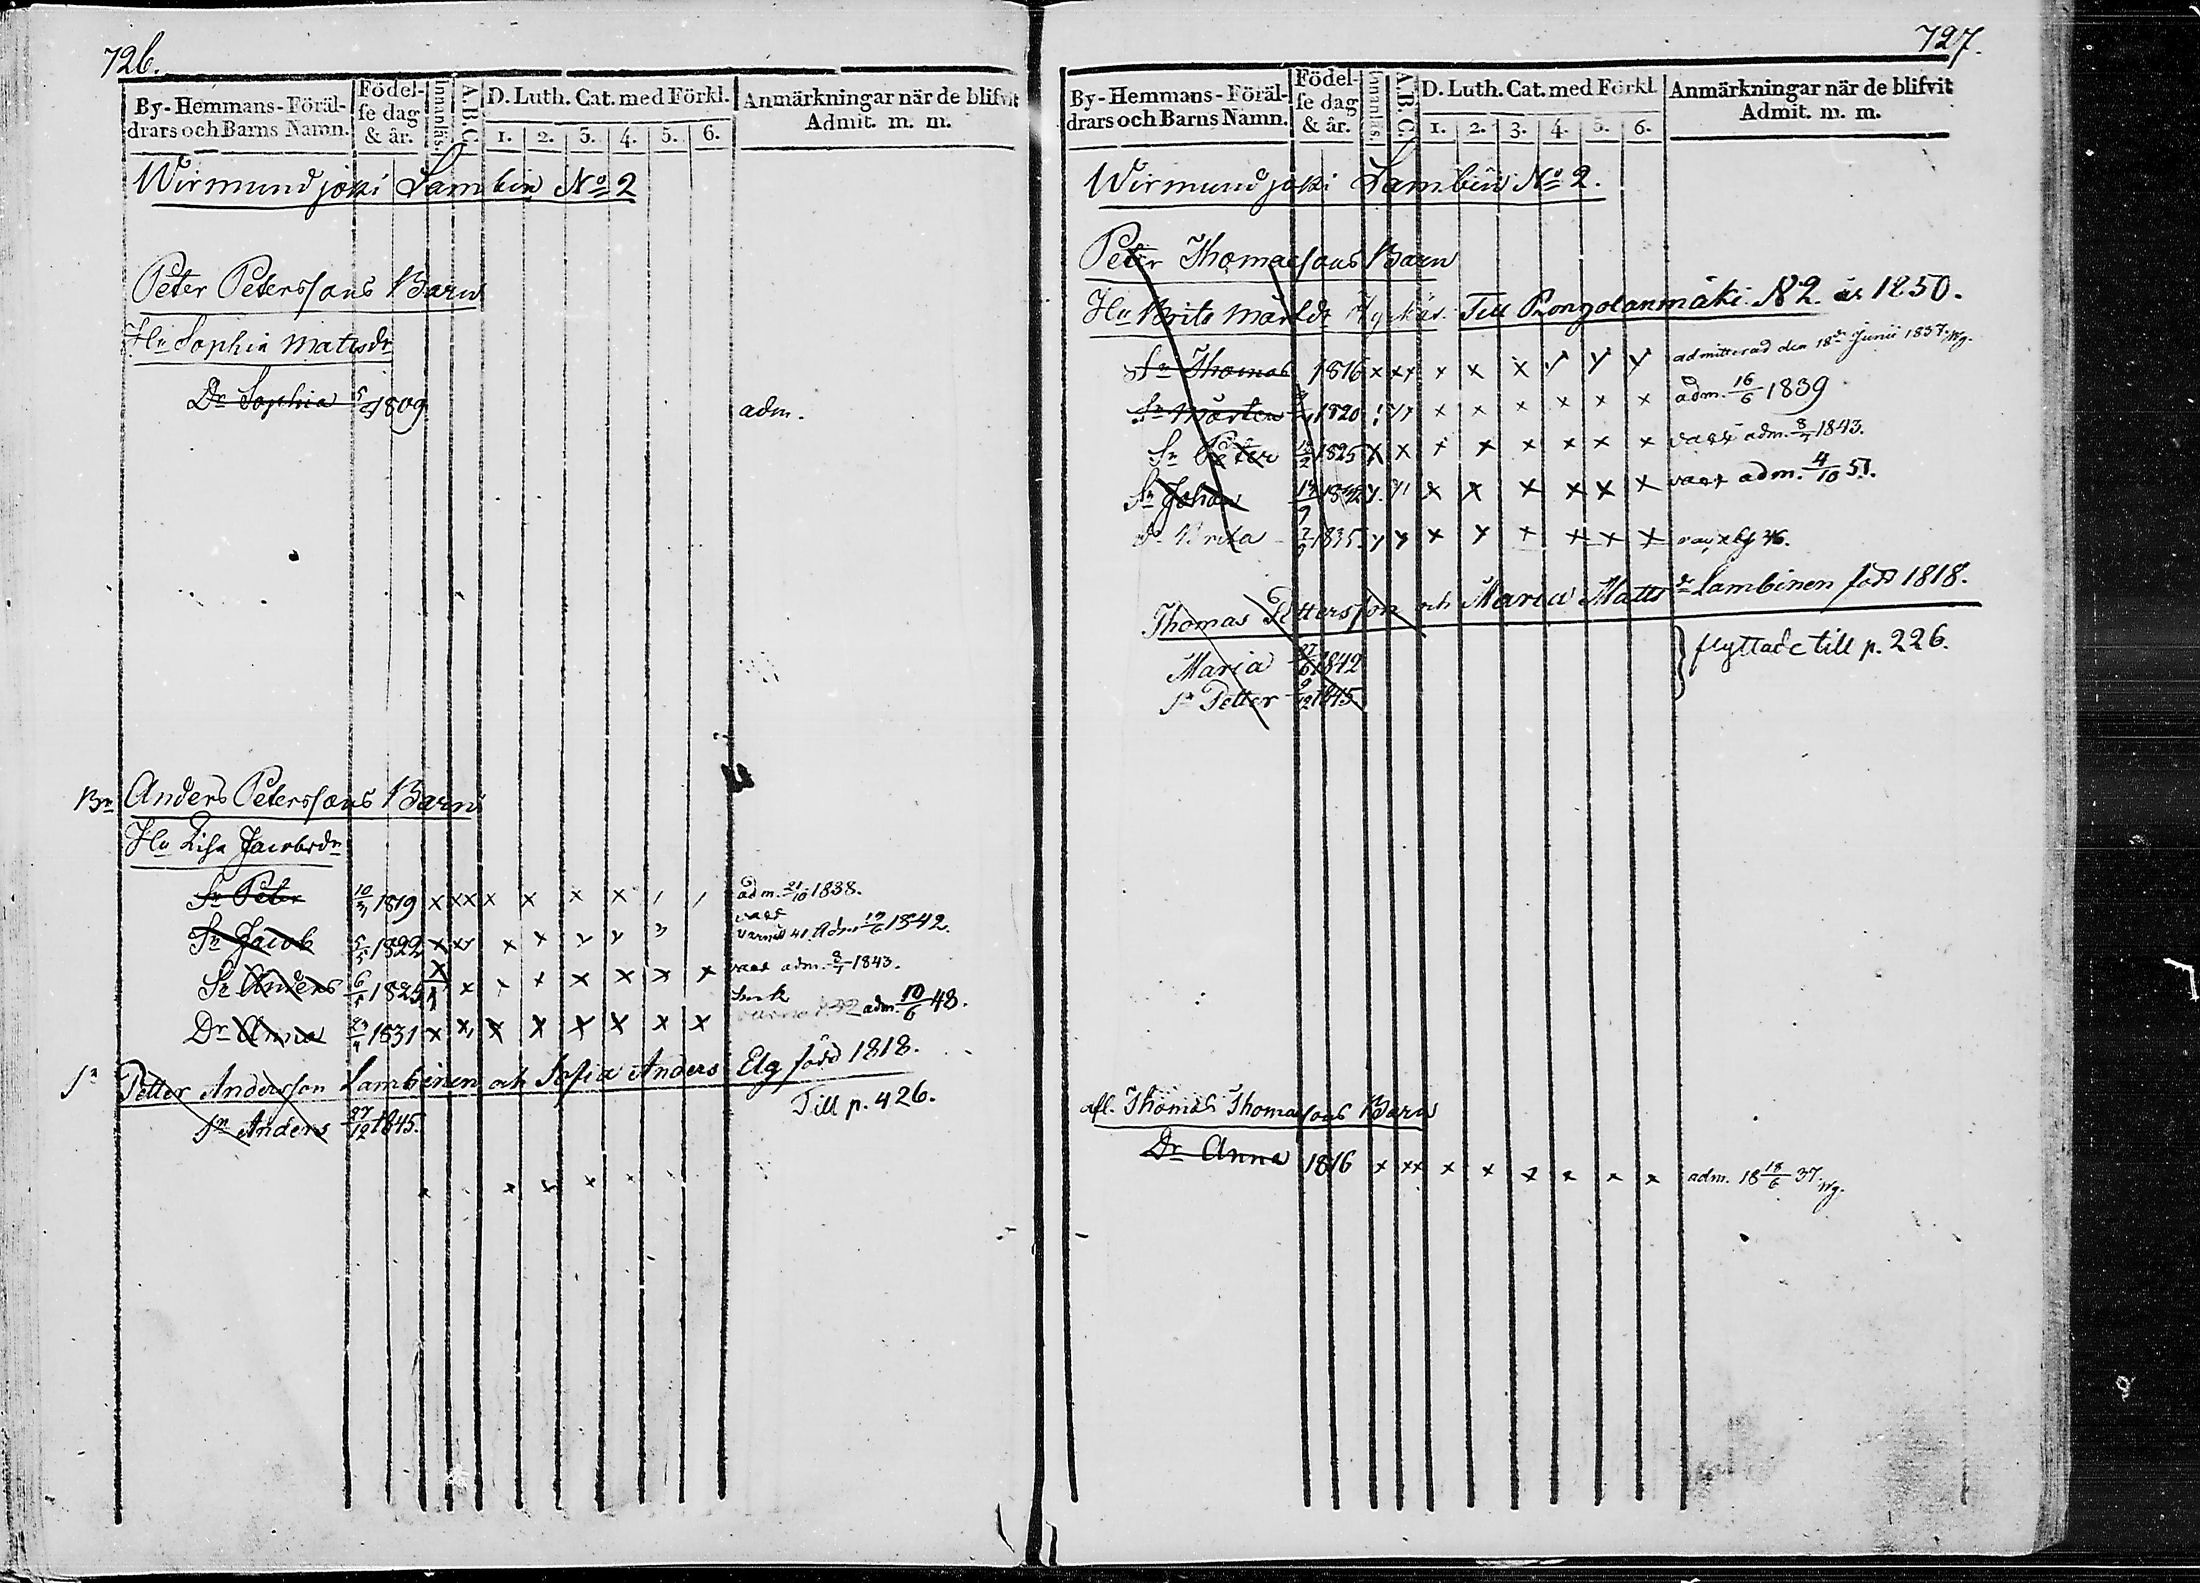 726.
By-Hemmans-Föräl-
drars och Barns Namn.
Födel-
se dag
& år.
Innanläs.
A.B.C.
D. Luth. Cat. med Förkl.
1. 2. 3. 4. 5. 6.
Anmärkningar när de blifvit
Admit. m. m.
Wirmundjoki Lambin No 2
Peter Peterssons Barn
Hu Sophia Matsdr
Dr Sophia 1809 adm.
Br Anders Peterssons Barn
Hu Lisa Jacobsdr
Sn Peter 10/3 1819 x xx x x x x adm. 21/10 1838.
Sn Jacob 5/5 1822 x xx x x x x 41. Adm 19/6 1842.
Sn Anders 6/5 1825 x x x x x x x adm. 8/7 1843.
Dr Anna 1831 x x x x x x x x adm. 10/6 48.
Sn Petter Andersson Lambinen och Sofia Anders Elg född 1818.
Till p. 426.
Sn Anders 27/12 1845.
x x x x x
727.
By-Hemmans-Föräl-
drars och Barns Namn.
Födel-
se dag
& år.
Innanläs.
A.B.C.
D. Luth. Cat. med Förkl.
1. 2. 3. 4. 5. 6.
Anmärkningar när de blifvit
Admit. m. m.
Wirmundjoki Lambin No 2.
Peter Thomassons Barn
Hu Brita Mårtsdr Till Pongolanmäki N 2 år 1850.
Sn Thomas 1816 x xx x x x x x x admitterad den 18de Junii 1837.
Sn Mårten 1820 x x x x x x adm. 16/6 1839
Sn Peter 1825 x x x x x x x x adm. 8/7 1843.
Sn Johan x x x x x x adm. 4/10 51.
Dr Brita 1835 x x x x x x x x
Thomas Pettersson och Maria Matts dr Lambinen född 1818.
Maria 1842
Sn Petter 9/12 1845
flyttade till p. 226.
afl. Thomas Thomassons Barn
Dr Anna 1816 x xx x x x x x x adm. 18 18/6 37.